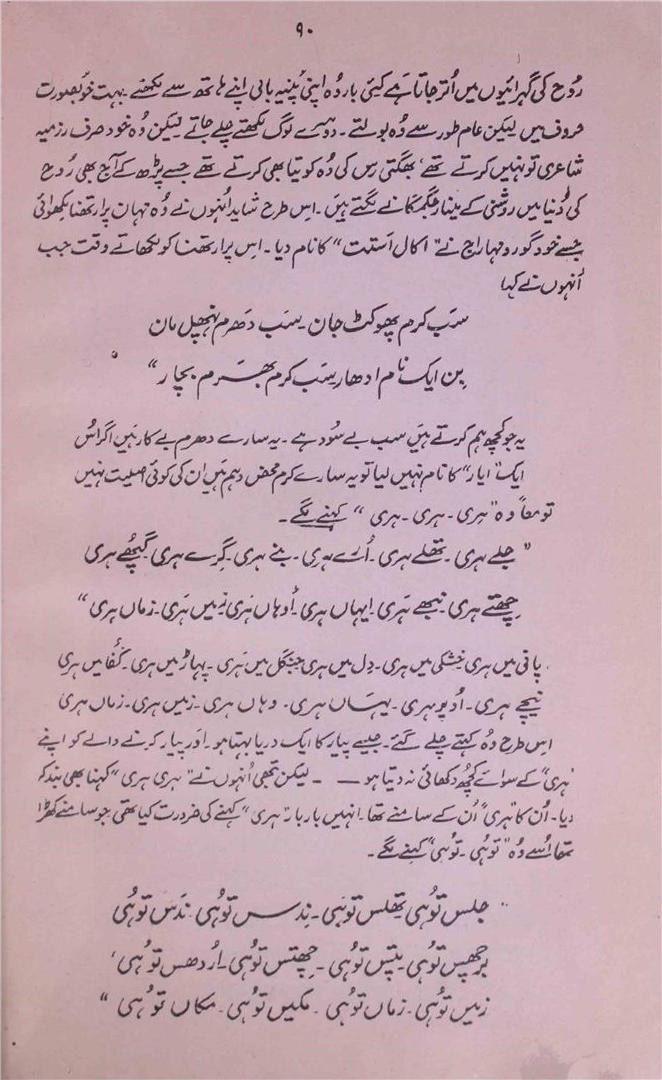 ۹۰
رُوح کی گہرائیوں میں اُتر جاتا ہے کئی بار وُہ اپنی پَنِیہ بانی اپنے ہاتھ سے لکھتے۔ بہت خوُبصورت
حروف میں لیکن عام طور سے وُہ بولتے۔ دوسرے لوگ لکھتے چلے جاتے لیکن وُہ خود صرف رزمیہ
شاعری تو نہیں کرتے تھے، بھگتی رس کی وُہ کویتا بھی کرتے تھے جسے پڑھ کے آج بھی رُوح
کی دُنیا میں روشنی کے مینار جگمگانے لگتے ہیں۔ اس طرح شاید اُنہوں نے وُہ مہان پرارتھنا لکھوائی
جسے خود گورو مہاراج نے "اکال اُستت" کا نام دیا۔ اس پرارتھنا کو لکھاتے وقت جب
اُنہوں نے کہا
سرَب کرم پھوکٹ جان۔ سَب دھرم نہچپل مان
بِن ایک نام ادھار سَب کرم بھرَم بچار"
یہ جو کچھ ہم کرتے ہیَں سب بے سوُد ہے۔ یہ سارے دھرم بے کار ہَیں اگر اُس
ایک "اپار" کا نام نہیں لیا تو یہ سارے کرم محض وہم ہَیں اِن کی کوئی اصلیت نہیں
تو معاً وہ "ہری۔ ہری۔ ہری" کہنے لگے۔
"جلے ہری۔ تھلے ہری۔ اُرے ہری۔ بنے ہری۔ گِرے ہری گپھے ہری
چھِتے ہری۔ نبھے ہری۔ ایہاں ہری۔ اُوہاں ہری زمیں ہری۔ زماں ہری"
پانی میں ہری خشکی میں ہری۔ دِل میں ہری جنگل میں ہری۔ پہاڑ میں ہری۔ گُفا میں ہری
نیچے ہری۔ اُوپر ہری۔ یہاں ہری۔ وہاں ہری۔ زمیں ہری۔ زماں ہری
اس طرح وُہ کہتے چلے گئے۔ جیسے پیار کا ایک دریا بہتا ہو۔ اور پیار کرنے والے کو اپنے
"ہری" کے سوائے کچھ دکھائی نہ دیتا ہو۔ —— لیکن تبھی اُنہوں نے "ہری ہری" کہنا بھی بند کر
دیا۔ اُن کا "ہری" اُن کے سامنے تھا۔ انہیں بار بار "ہری" کہنے کی ضرورت کیا تھی جو سامنے کھڑا
تھا اُسے وُہ "توُہی۔ توُہی" کہنے لگے۔
"جلس توُہی تھلس توُہی۔ نِدس توُہی نَدَس توُہی
برچھس توُہی پتس توُہی۔ چھِتس توُہی۔ اُردھس توُہی
زمیں توُہی۔ زماں توُہی۔ مکیں توُہی۔ مکاں توُہی"